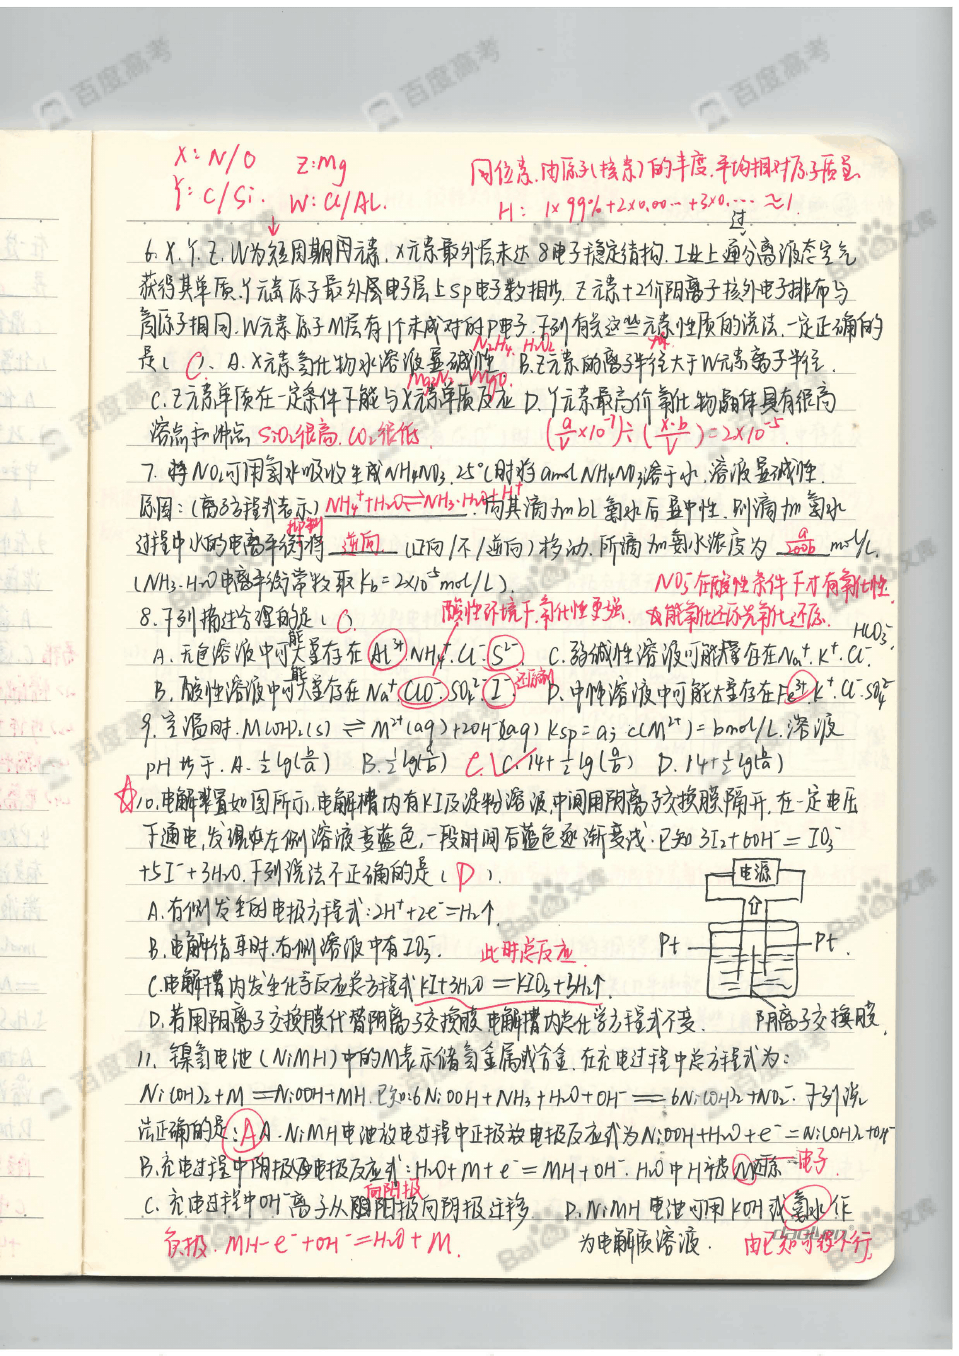 X:N/O Z:Mg
Y:C/Si. W:Cl/AL.
同位素.由原子(核素)的丰度.平均相对原子质量
H: 1×99%+2×0.00…+3×0.… ≈1.
过
6.X.Y.Z.W为短周期同元素,X元素最外层未达8电子稳定结构,工业上通分离液态空气
获得其单质,Y元素原子最外层电子层上sp电子数相等,Z元素+2价阳离子核外电子排布与
氖原子相同.W元素原子M层有1个未成对的P电子.下列有关这些元素性质的说法,一定正确的
是( C ). A.X元素氢化物水溶液显碱性 N2H4. H2O2 B.Z元素的离子半径大于W元素离子半径.
Mg3N2 MgO
C.Z元素单质在一定条件下能与X元素单质反应 D.Y元素最高价氧化物晶体具有很高
溶点和沸点 SiO2很高.CO2很低. (a/V×10⁻⁷)÷(x·b/V)=2×10⁻⁵.
7.将NO2可用氨水吸收生成NH4NO3.25℃时将amolNH4NO3溶于水.溶液显碱性.
原因:(离子方程式表示) NH4⁺+H2O⇌NH3·H2O+H⁺ .向其滴加bL氨水后显中性,则滴加氨水
抑制
过程中水的电离平衡将 逆向 (正向/不/逆向)移动,所滴加氨水浓度为 a/200b mol/L.
(NH3·H2O电离平衡常数取Kb=2×10⁻⁵mol/L).
NO3⁻在酸性条件下才有氧化性
8.下列描述合理的是( C. 酸性环境下,氧化性更强. 能氧化还原先氧化还原.
能 HCO3⁻
A.无色溶液中可大量存在Al³⁺.NH4⁺.Cl⁻.S²⁻ C.弱碱性溶液可能大量存在Na⁺.K⁺.Cl⁻.
能 还原剂
B.酸性溶液中可大量存在Na⁺.ClO⁻.SO4²⁻.I⁻ D.中性溶液中可能大量存在Fe³⁺.K⁺.Cl⁻.SO4²⁻
9.室温时,M(OH)2(s)⇌M²⁺(aq)+2OH⁻(aq) Ksp=a; c(M²⁺)=bmol/L.溶液
pH等于. A.½lg(b/a) B.½lg(a/b) C.√ C.14+½lg(a/b) D.14+½lg(b/a)
☆10.电解装置如图所示.电解槽内有KI及淀粉溶液,中间用阴离子交换膜隔开.在一定电压
下通电,发现左侧溶液变蓝色,一段时间后蓝色逐渐变浅.已知3I2+6OH⁻=IO3⁻
+5I⁻+3H2O.下列说法不正确的是( D ).
电源
A.右侧发生的电极方程式:2H⁺+2e⁻=H2↑
B.电解结束时,右侧溶液中有IO3⁻ 此时总反应
Pt Pt.
C.电解槽内发生化学反应总方程式KI+3H2O=KIO3+3H2↑.
D.若用阳离子交换膜代替阴离子交换膜.电解槽内总化学方程式不变. 阴离子交换膜.
11.镍氢电池(NiMH)中的M表示储氢金属或合金.在充电过程中总方程式为:
Ni(OH)2+M=NiOOH+MH.已知:6NiOOH+NH3+H2O+OH⁻=6Ni(OH)2+NO2⁻.下列说
法正确的是: A A.NiMH电池放电过程中正极放电极反应式为NiOOH+H2O+e⁻=Ni(OH)2+OH⁻
B.充电过程中阴极反电极反应式:H2O+M+e⁻=MH+OH⁻.H2O中H被M还原 电子
向阳极
C.充电过程中OH⁻离子从阳极向阴极迁移 D.NiMH电池可用KOH或氨水作
负极.MH-e⁻+OH⁻=H2O+M. 为电解质溶液. 由已知可得不行